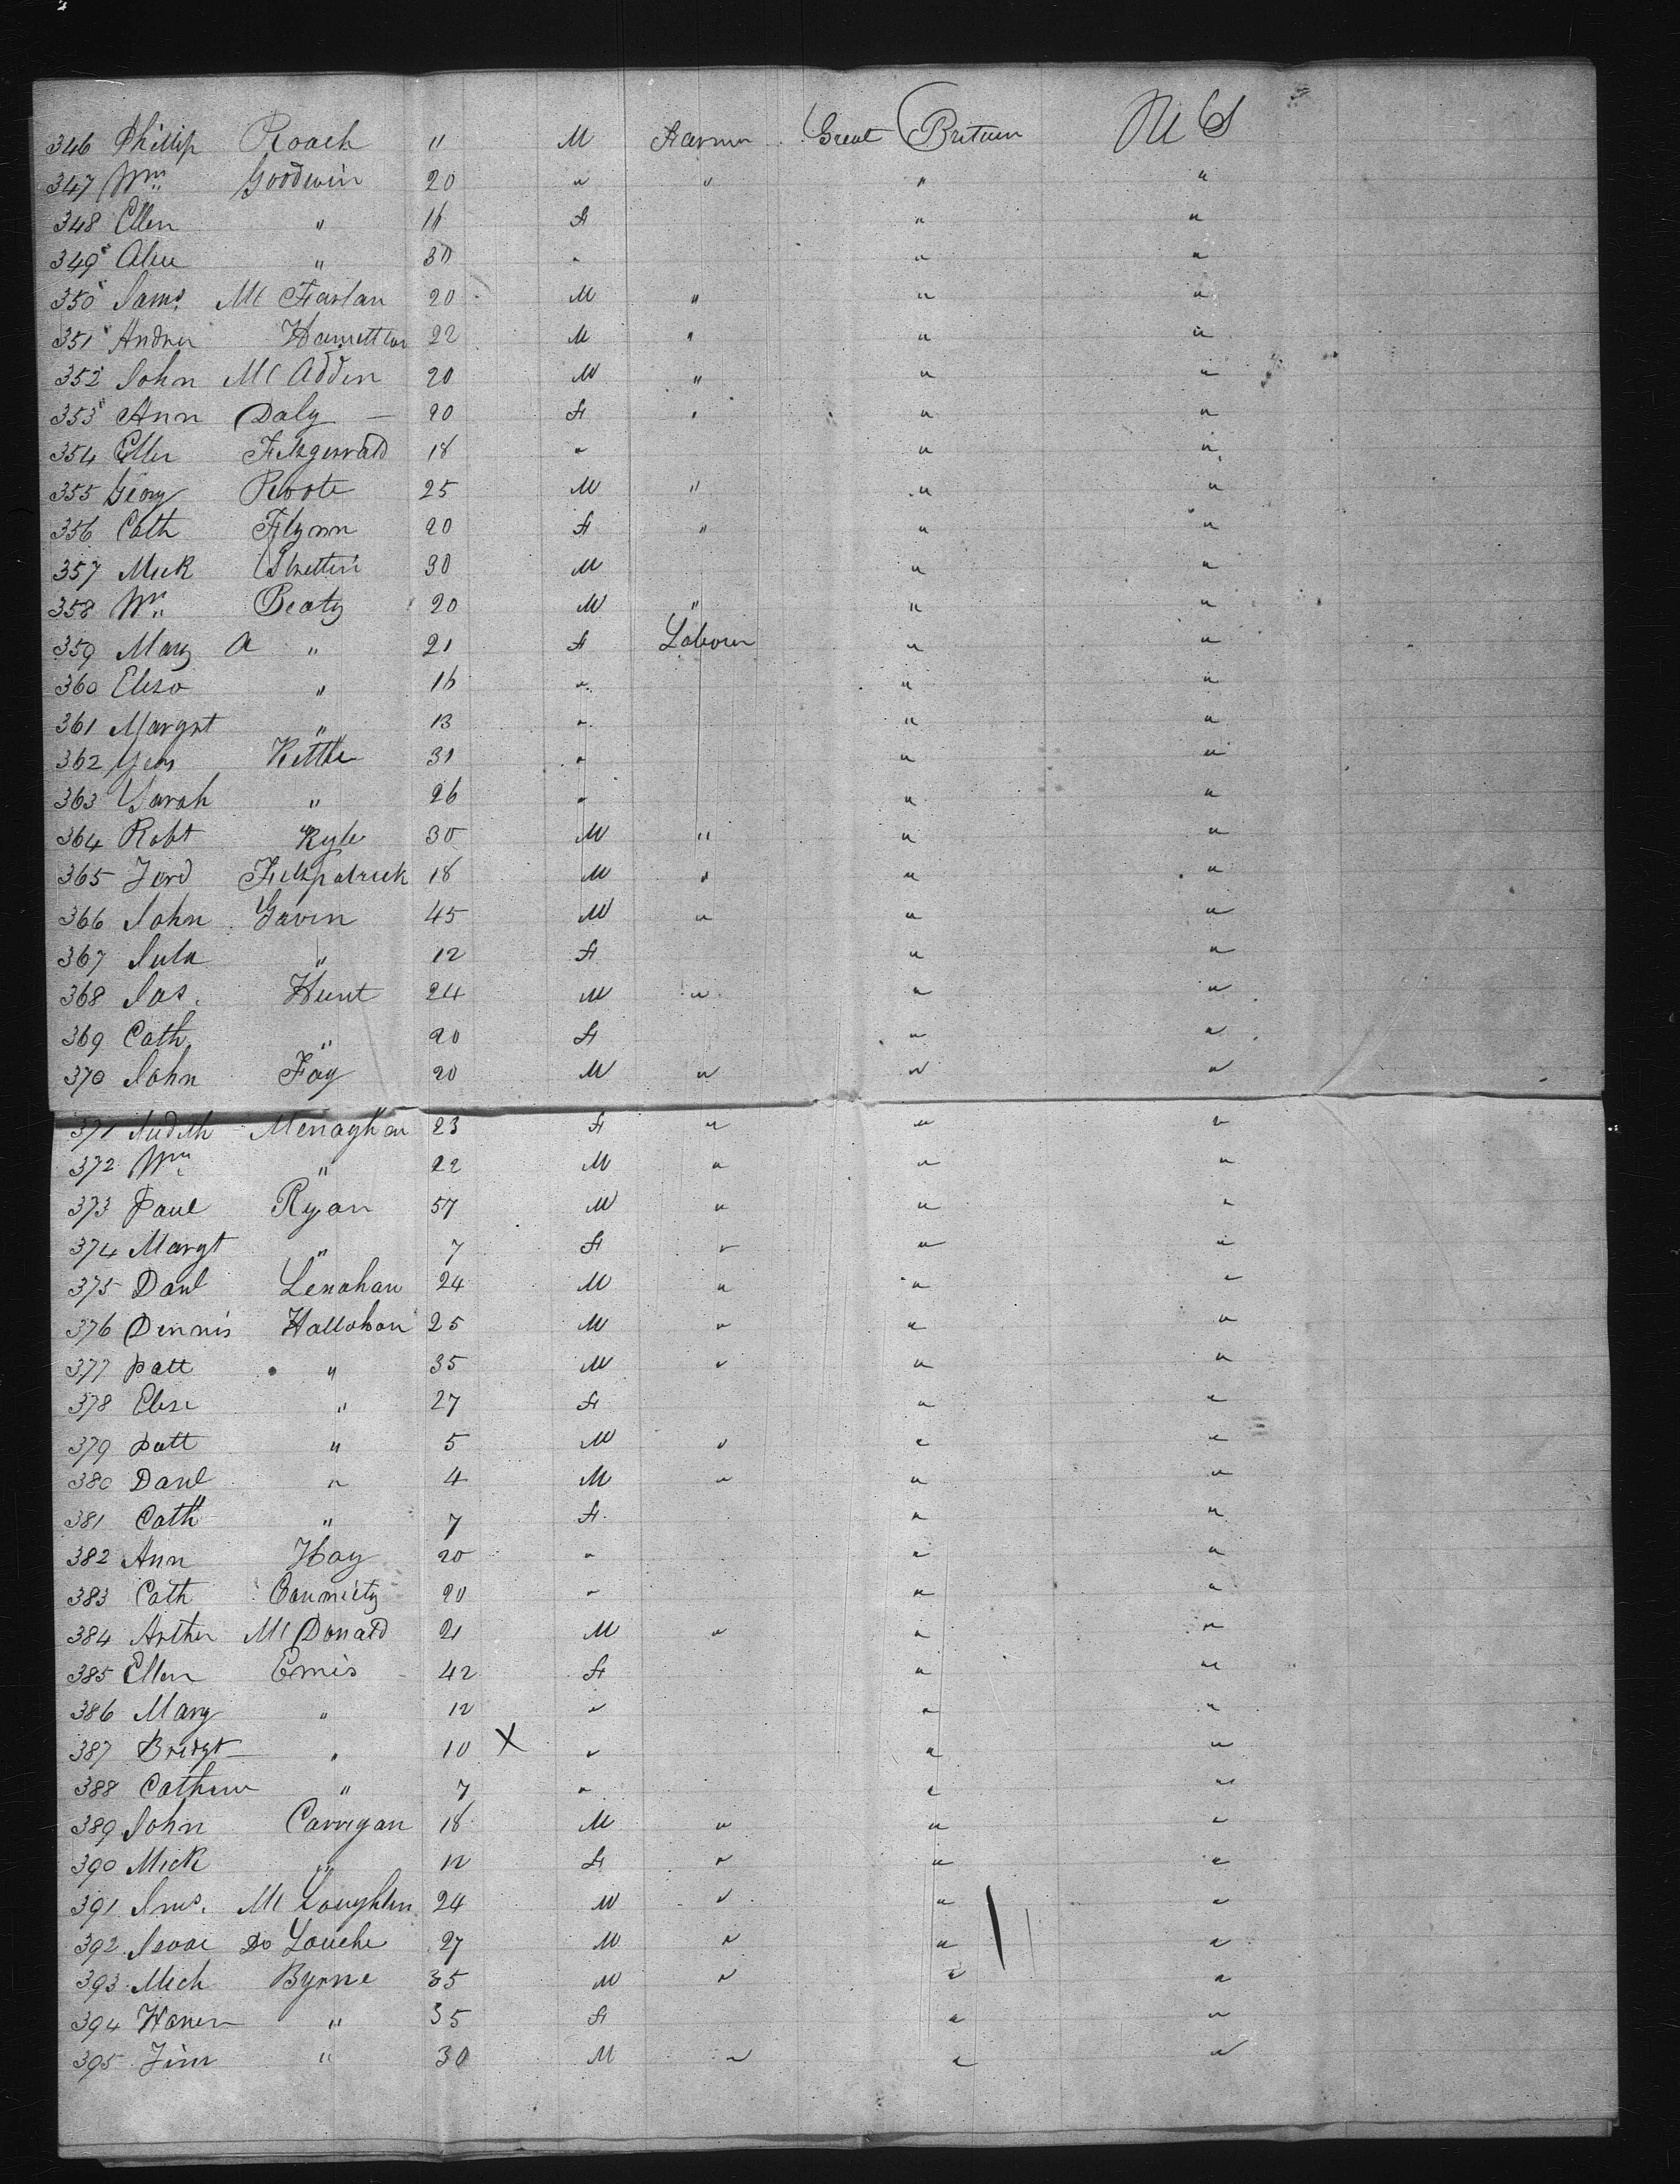 346 Phillip Roach " M Farmer Great Britain U S
347 Wm Goodwin 20 " " " "
348 Ellen " 16 F " "
349 Alice " 30 " " "
350 Saml Mc Farlan 20 M " " "
351 Andrew 22 M " " "
352 John Mc Adden 20 M " " "
353 Ann Daly 20 F " " "
354 Ellen Fitzgerrald 18 " " "
355 Georg 25 M " " "
356 Cath Flynn 20 F " " "
357 Mick 30 M " "
358 Wm Beaty 20 M " " "
359 Mary A " 21 F Labourer " "
360 Eliza " 16 " " "
361 Margrt " 13 " " "
362 Kettle 31 " " "
363 Sarah " 26 " " "
364 Robt Kyle 30 M " " "
365 Ferd Fitzpatrick 18 M " " "
366 John Gavin 45 M " " "
367 Julia " 12 F " "
368 Jas. Hunt 24 M " " "
369 Cath " 20 F " "
370 John Fay 20 M " " "
371 Judith Menaghan 23 F " " "
372 Wm " 22 M " " "
373 Paul Ryan 57 M " " "
374 Margt " 7 F " " "
375 Danl Lenahan 24 M " " "
376 Dennis Hallahan 25 M " " "
377 Patt " 35 M " " "
378 Elisa " 27 F " "
379 Patt " 5 M " " "
380 Danl " 4 M " " "
381 Cath " 7 F " "
382 Ann Hay 20 " " "
383 Cath 20 " " "
384 Arther Mc Donald 21 M " " "
385 Ellen Ennis 42 F " "
386 Mary " 12 " " "
387 Bridgt " 10 X " " "
388 Catherine " 7 " " "
389 John Carrigan 18 M " " "
390 Mick " 12 F " " "
391 Jms. Mc Loughlin 24 M " " "
392 Isaac Do Louche 27 M " " "
393 Mich Byrne 35 M " " "
394 " 35 F " "
395 Jim " 30 M " " "